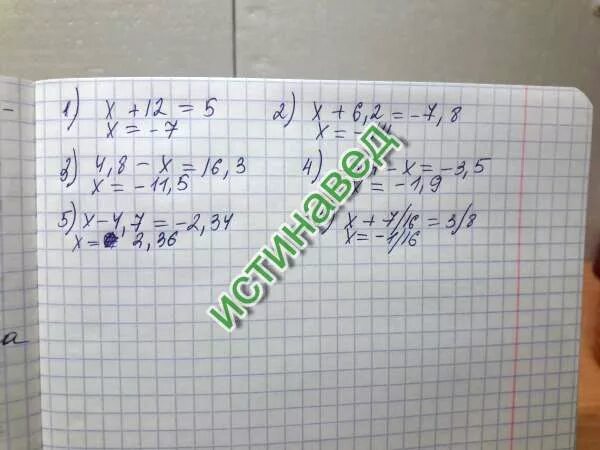 1) x + 12 = 5
x = -7
2) x + 6,2 = -7,8
x = -
3) 4,8 - x = 16,3
x = -11,5
4) - x = -3,5
x = -1,9
5) x - 4,7 = -2,34
x = 2,36
) x + 7/16 = 3/8
x = -1/16
а
истинавед